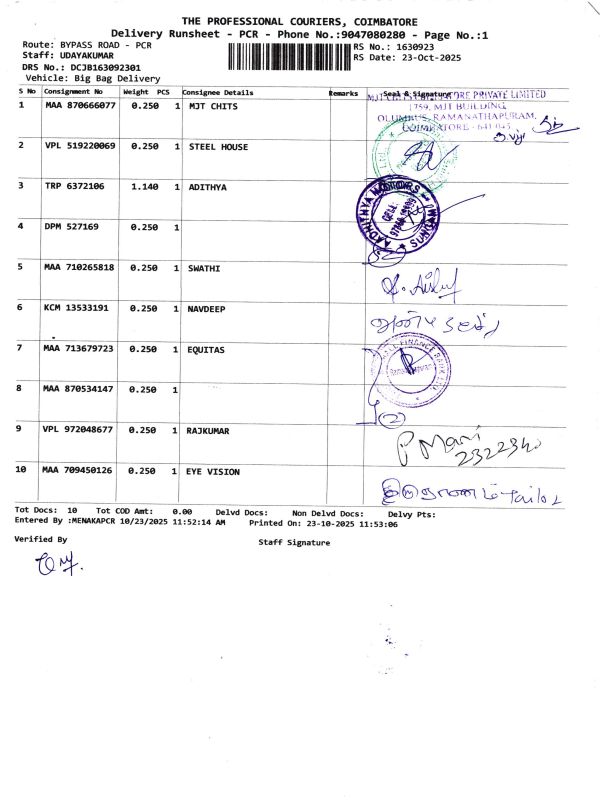 THE PROFESSIONAL COURIERS, COIMBATORE
Delivery Runsheet - PCR - Phone No.:9047080280 - Page No.:1
Route: BYPASS ROAD - PCR
Staff: UDAYAKUMAR
DRS No.: DCJB163092301
Vehicle: Big Bag Delivery
RS No.: 1630923
RS Date: 23-Oct-2025
S No Consignment No Weight PCS Consignee Details Remarks Seal & Signature
1 MAA 870666077 0.250 1 MJT CHITS
PRIVATE LIMITED
1759, MJT BUILDING,
OLUMBUS, RAMANATHAPURAM,
COIMBATORE - 641 045.
2 VPL 519220069 0.250 1 STEEL HOUSE
3 TRP 6372106 1.140 1 ADITHYA
AADHITHYA MOTORS
SUNDARAM
4 DPM 527169 0.250 1
5 MAA 710265818 0.250 1 SWATHI
6 KCM 13533191 0.250 1 NAVDEEP
7 MAA 713679723 0.250 1 EQUITAS
SMALL FINANCE BANK LTD.
8 MAA 870534147 0.250 1
2
9 VPL 972048677 0.250 1 RAJKUMAR
P Mani
2322340
10 MAA 709450126 0.250 1 EYE VISION
Tailor
Tot Docs: 10 Tot COD Amt: 0.00 Delvd Docs: Non Delvd Docs: Delvy Pts:
Entered By :MENAKAPCR 10/23/2025 11:52:14 AM Printed On: 23-10-2025 11:53:06
Verified By
Staff Signature